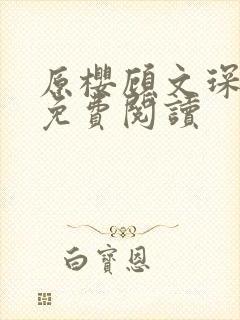 原櫻顧文琛
免費閱讀
白寶恩